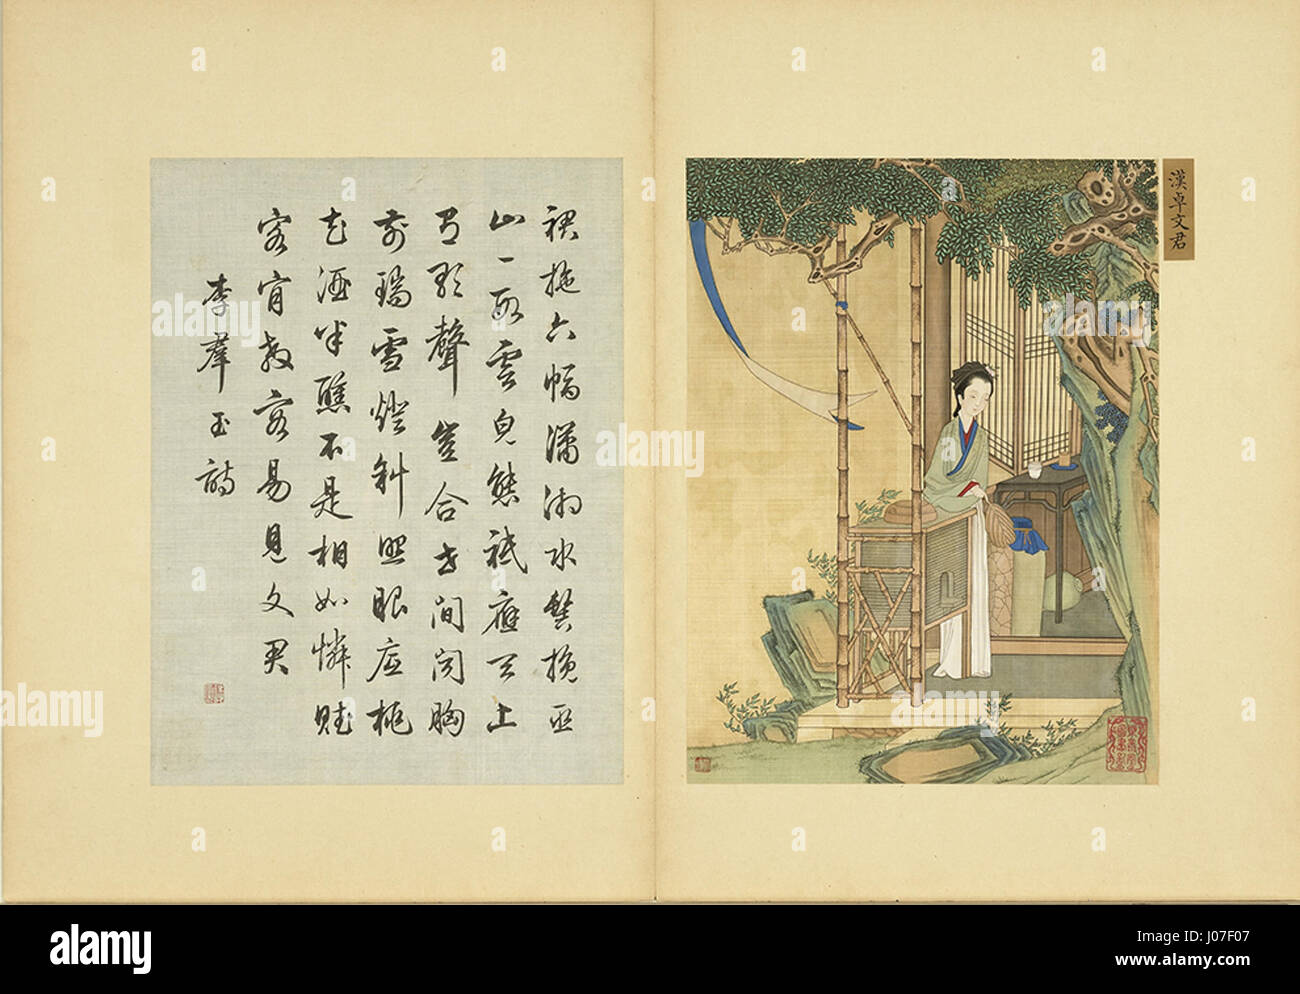 漢卓文君
裙拖六幅瀟湘水鬢挽巫
山一段雲皃態祇應天上
有歌聲豈合世間聞胸
前瑞雪燈斜照眼底桃
花酒半醺不是相如憐賦
客肯教容易見文君
李羣玉詩
alamy
Image ID: J07F07
www.alamy.com